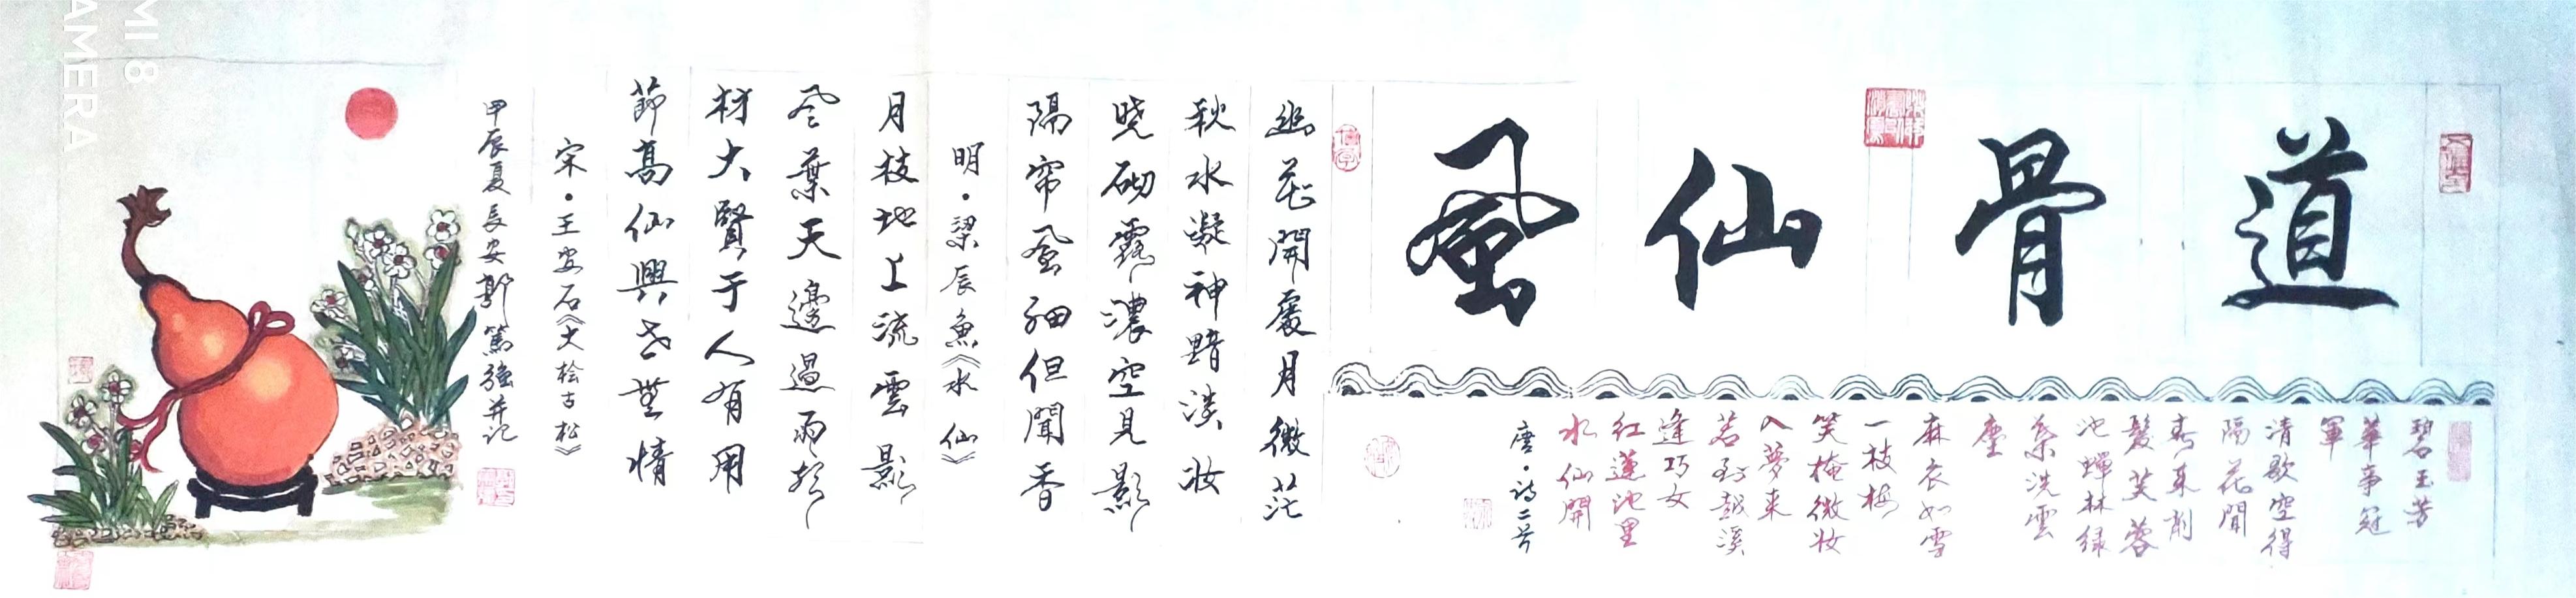 道骨仙風
碧玉芳
華事冠
軍
清歌空得
隔花聞
春来削
髮芙蓉
池蟬林緑
系洗雲
塵
麻衣如雪
一枝梅
笑掩微妆
入夢来
若到越溪
逢巧女
红蓮池里
水仙開
唐·诗二首
幽花開處月微茫
秋水凝神黯淡妆
晓砌露濃空見影
隔帘風細但聞香
明·梁辰魚《水仙》
月枝地上流雲影
風葉天邊過雨聲
材大賢于人有用
節高仙與世無情
宋·王安石《大桧古松》
甲辰夏長安郭篤強并记
MI 8
AMERA